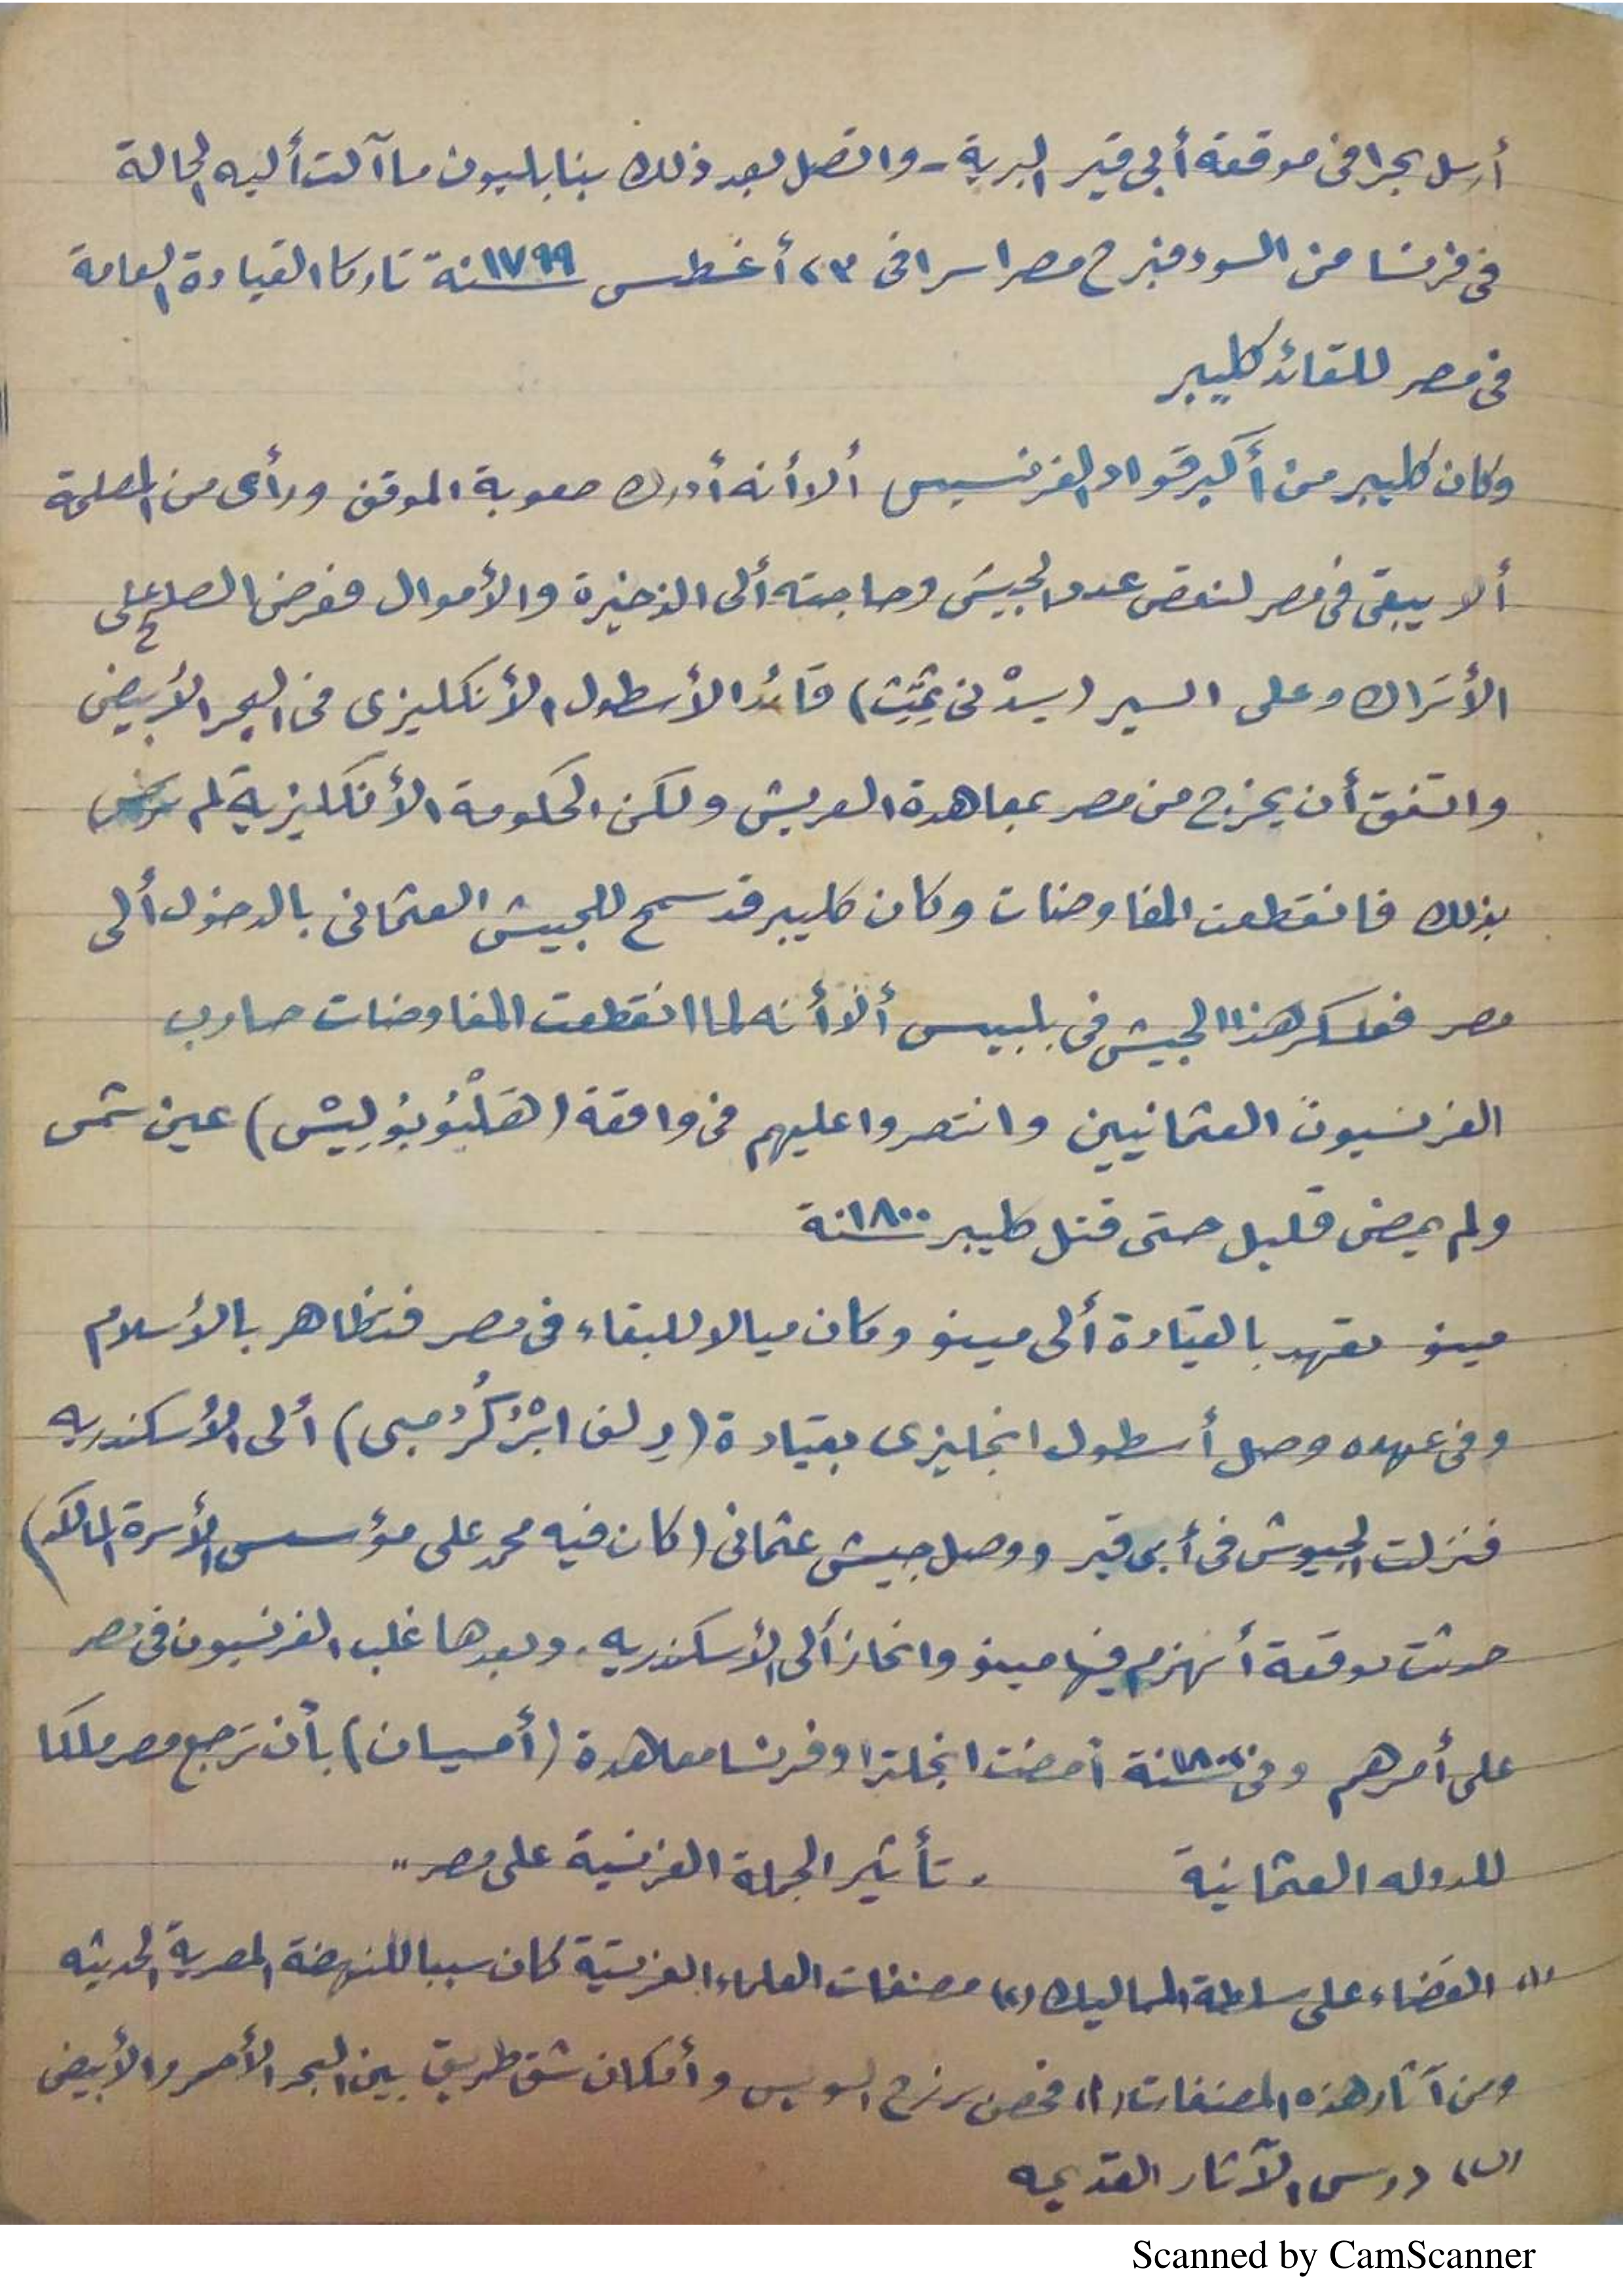 أرسل بحرا فى موقعة أبى قير البرية - واتصل بعد ذلك بنابليون ما آلت أليه الحالة
فى فرنسا من السوء فبرح مصر سرا فى ٢٣ أغطس سنة ١٧٩٩ تاركا القيادة العامة
فى مصر للقائد كليبر
وكان كليبر من أكبر قواد الفرنسيس ألا أنه أدرك صعوبة الموقف ورأى من المصلحة
ألا يبقى فى مصر لنقص عدد الجيش وحاجته ألى الذخيرة والأموال فعرض الصلح على
الأتراك وعلى السير (سدْنى سْمِث) قائد الأسطول الأنكليزى فى البحر الأبيض
واتفق أن يخرج من مصر بمعاهدة العريش ولكن الحكومة الأنكليزية لم ترض
بذلك فانقطعت المفاوضات وكان كليبر قد سمح للجيش العثمانى بالدخول ألى
مصر فعسكر هذا الجيش فى بلبيس ألا أنه لما انقطعت المفاوضات حارب
الفرنسيون العثمانيين وانتصروا عليهم فى واقعة (هَلْيُوبُولِيسْ) عين شمس
ولم يمضى قليل حتى قتل كليبر سنة ١٨٠٠
مينو عهد بالقيادة ألى مينو وكان ميالا للبقاء فى مصر فتظاهر بالأسلام
وفى عهده وصل أسطول انجليزى بقيادة ( ابْرْكُرُمبى) ألى الأسكندريه
فنزلت الجيوش فى أبى قير ووصل جيش عثمانى (كان فيه محمد على مؤسس الأسرة المالكه)
حدثت موقعة أنهزم فيها مينو وانحاز ألى الأسكندريه. وبعدها غلب الفرنسيون فى مصر
على أمرهم وفى سنة أمضت انجلترا وفرنسا معاهدة (أميان) بأن ترجع مصر ملكا
للدوله العثمانية
" تأثير الحملة الفرنسية على مصر "
(١) القضاء على سلطة المماليك (٢) مصنفات العلماء الفرنسية كان سببا للنهضة المصرية الحديثه
ومن آثار هذه المصنفات (١) فحص برزخ السويس وأمكان شق طريق بين البحر الأحمر والأبيض
(٢) درس الآثار القديمه
Scanned by CamScanner